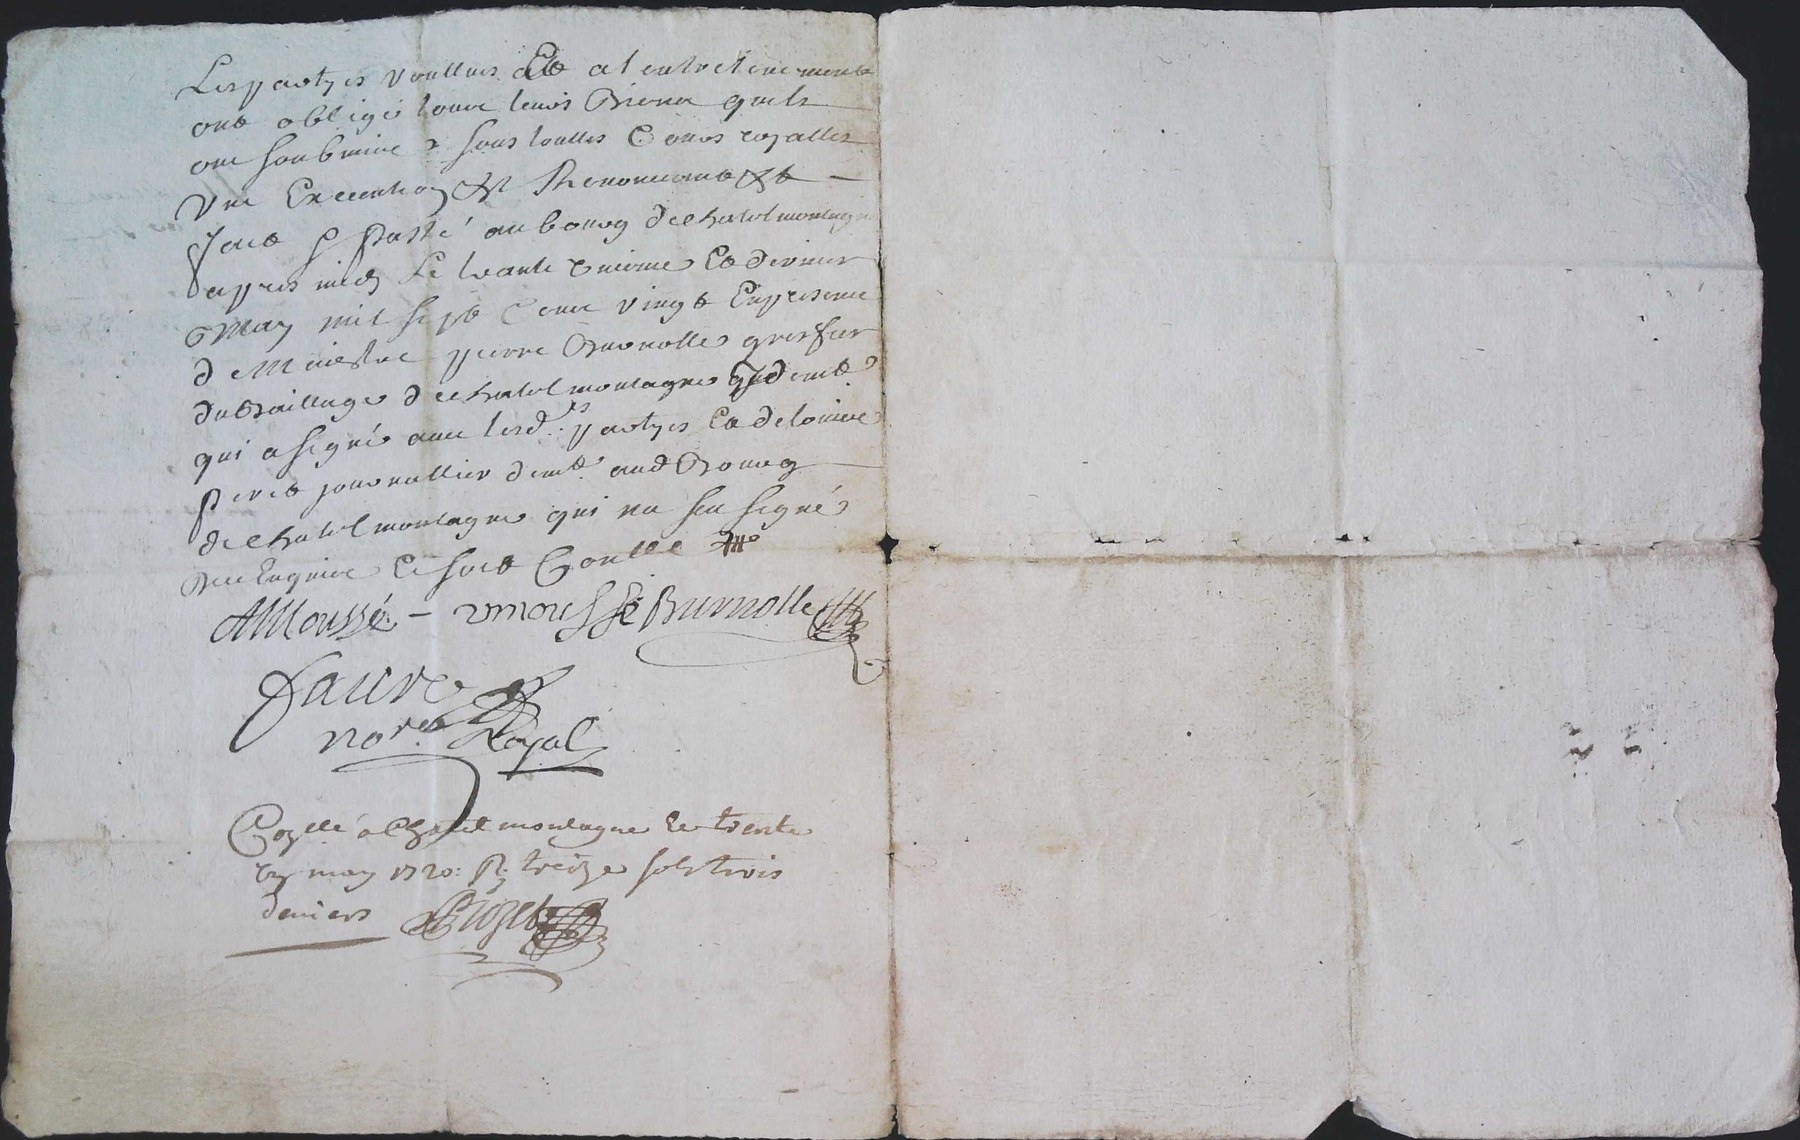 Les partyes voullues Et a lentretenement
ont obligé tous leurs Biens quils
ont soubmis a sous touttes Cours royalles
Une Execution & Renonceant &
faict & Passé au bourg de chatelmontagne
apres midy Le trante unieme Et dernier
May mil sept Cent vingt En presence
de Me pierre Burnolle greffier
du Baillage de chatelmontagne y demt
qui a signé avec lesd. partyes Et de
journallier demt aud Bourg
de chatelmontagne qui na sceu signé
de ce Enquire Et sont
AMoussé - vmousse Burnolle
Faure
nore Royal
Conllé a Chatelmontagne le trente
un may 1720: R. treize sols trois
deniers